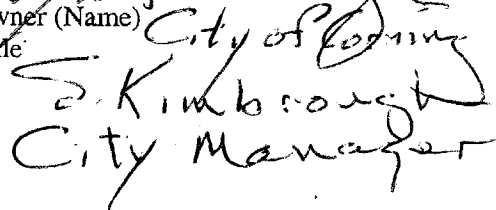 wner (Name) City of Corning
le
S. Kimbrough
City Manager